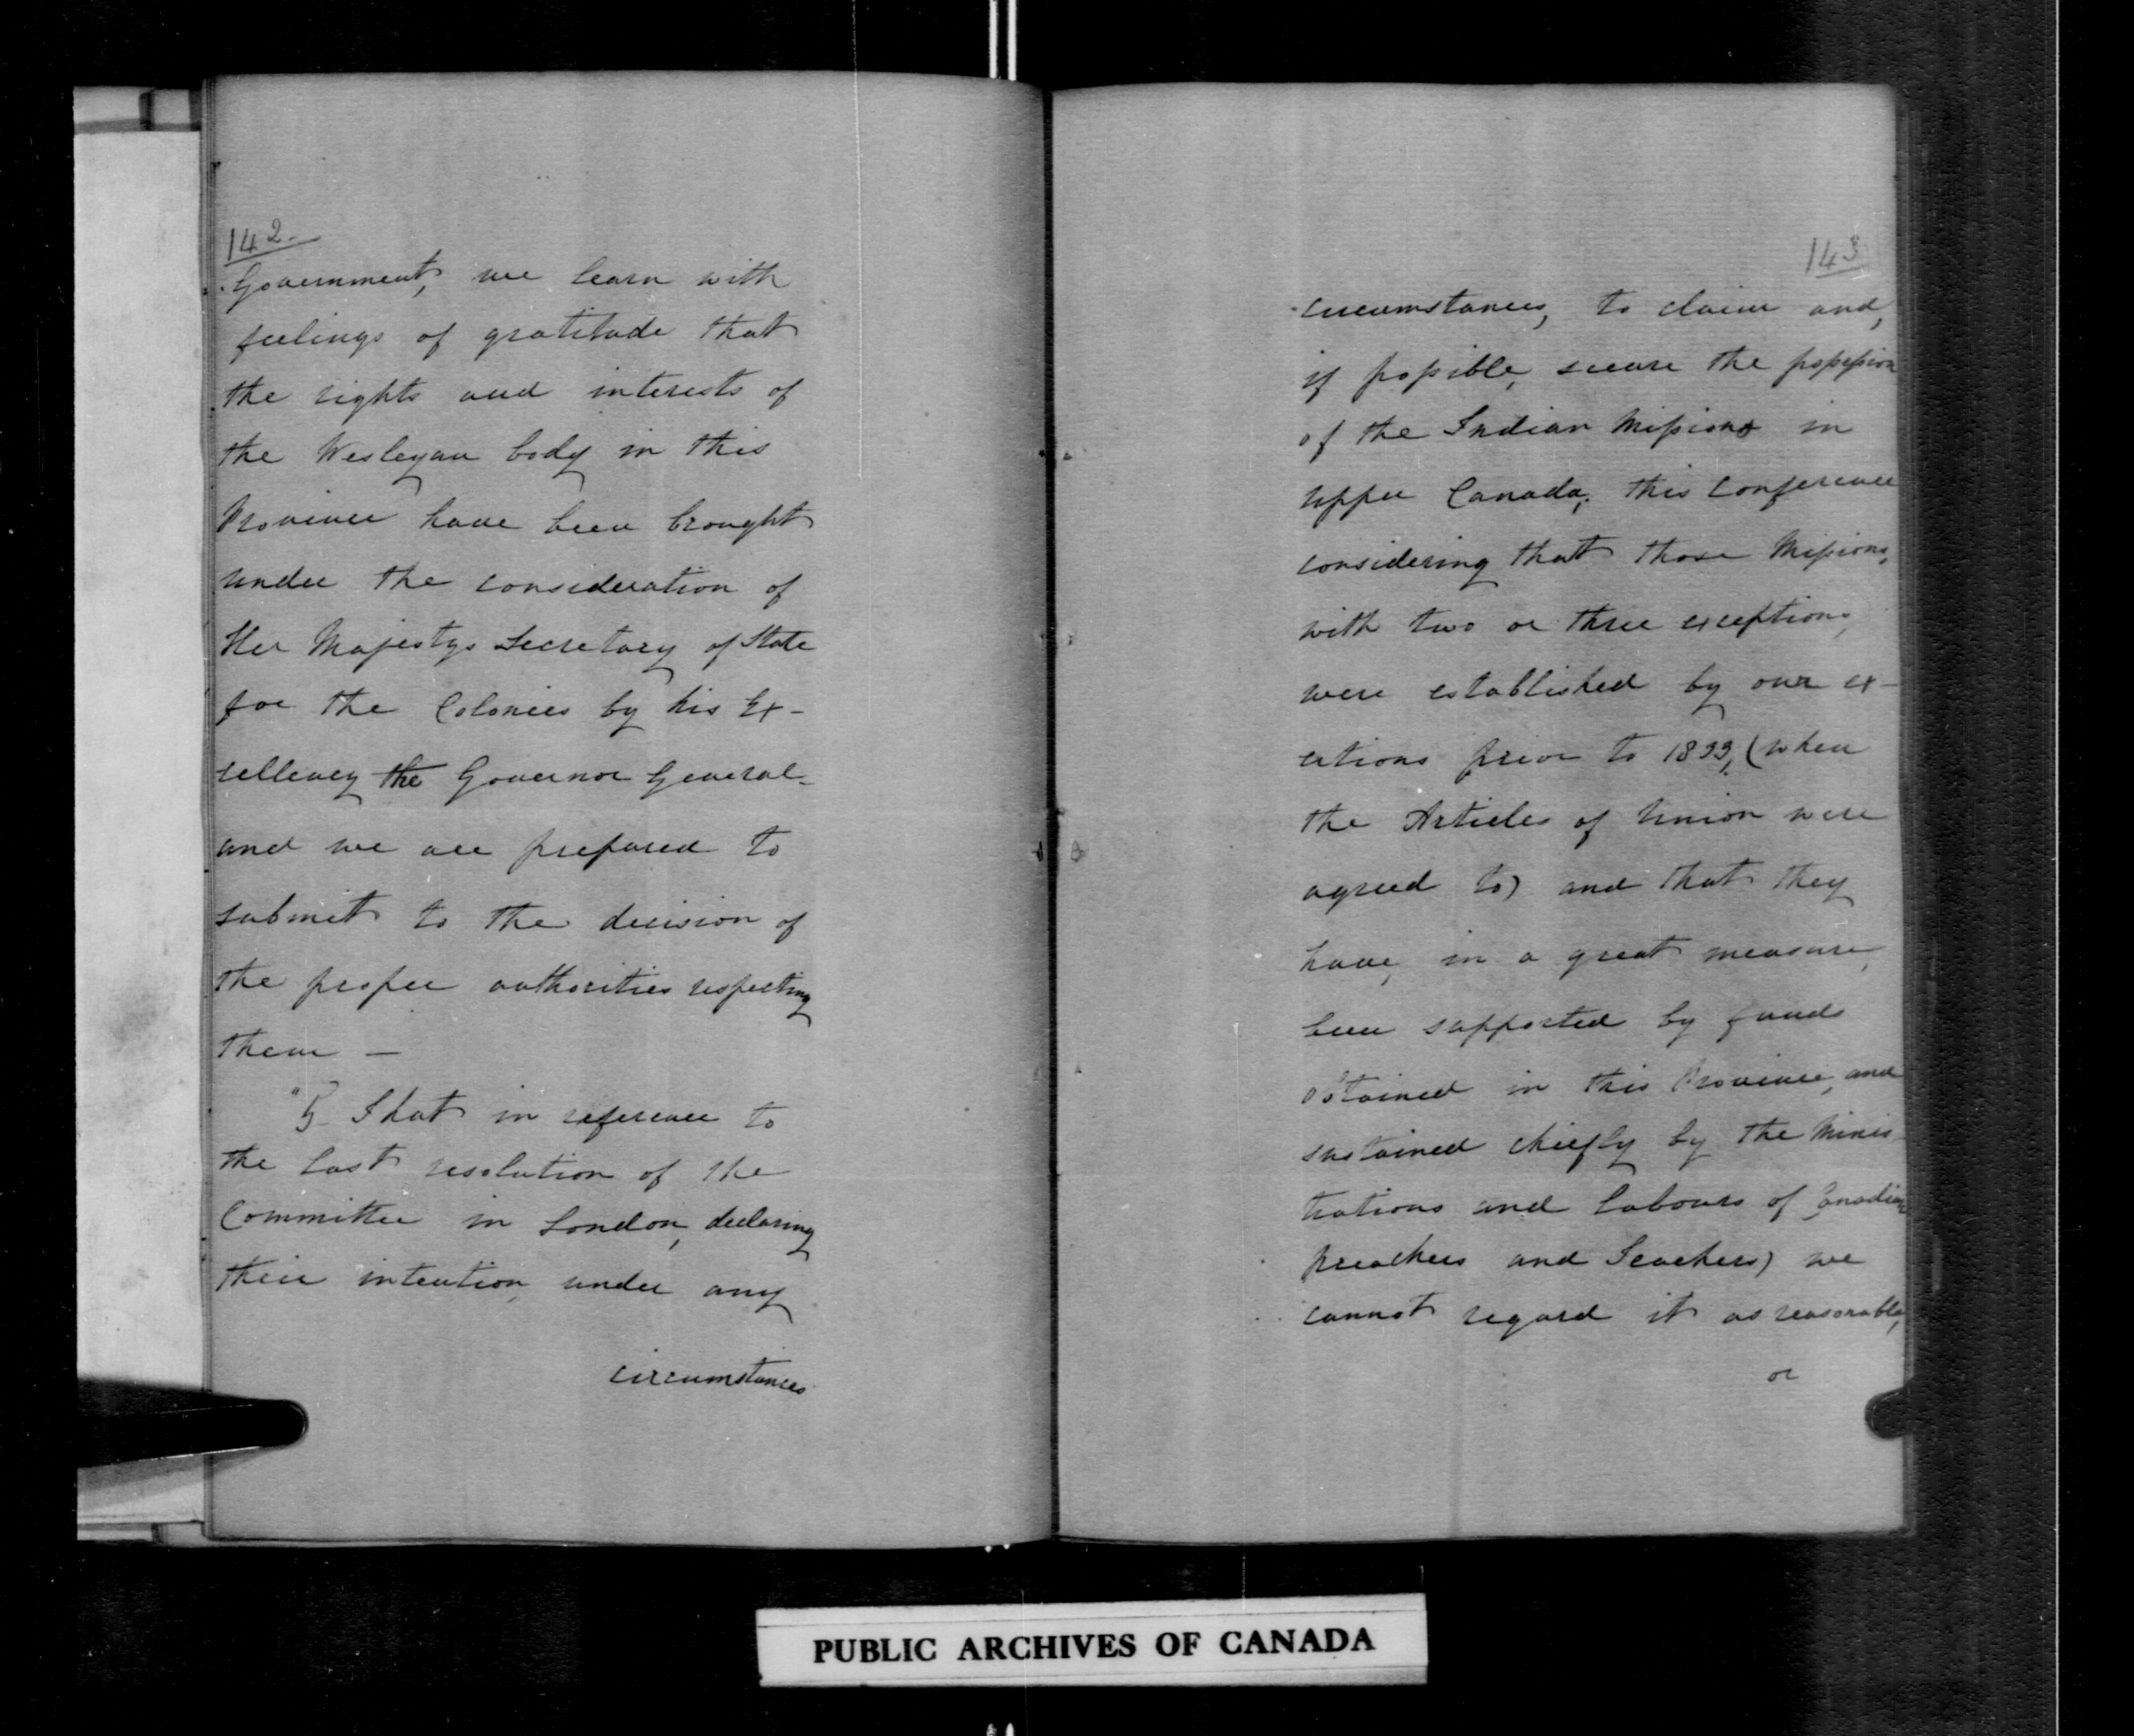 142-
Government, we learn with
feelings of gratitude that
the rights and interests of
the Wesleyan body in this
Province have been brought
under the consideration of
Her Majestys Secretary of State
for the Colonies by his Ex-
cellency the Governor General-
and we are prepared to
submit to the decision of
the proper authorities respecting
them —
"5- That in reference to
the last resolution of the
Committee in London, declaring
their intention, under any
circumstances
143
circumstances, to claim and,
if possible, secure the possession
of the Indian Missions in
Upper Canada; this Conference
considering that those Missions,
with two or three exceptions,
were established by our ex-
ertions prior to 1833, (when
the Articles of Union were
agreed to) and that they
have, in a great measure,
been supported by funds
obtained in this Province, and
sustained chiefly by the Minis-
trations and labours of Canadian
preachers and Teachers) we
cannot regard it as reasonable,
or
PUBLIC ARCHIVES OF CANADA